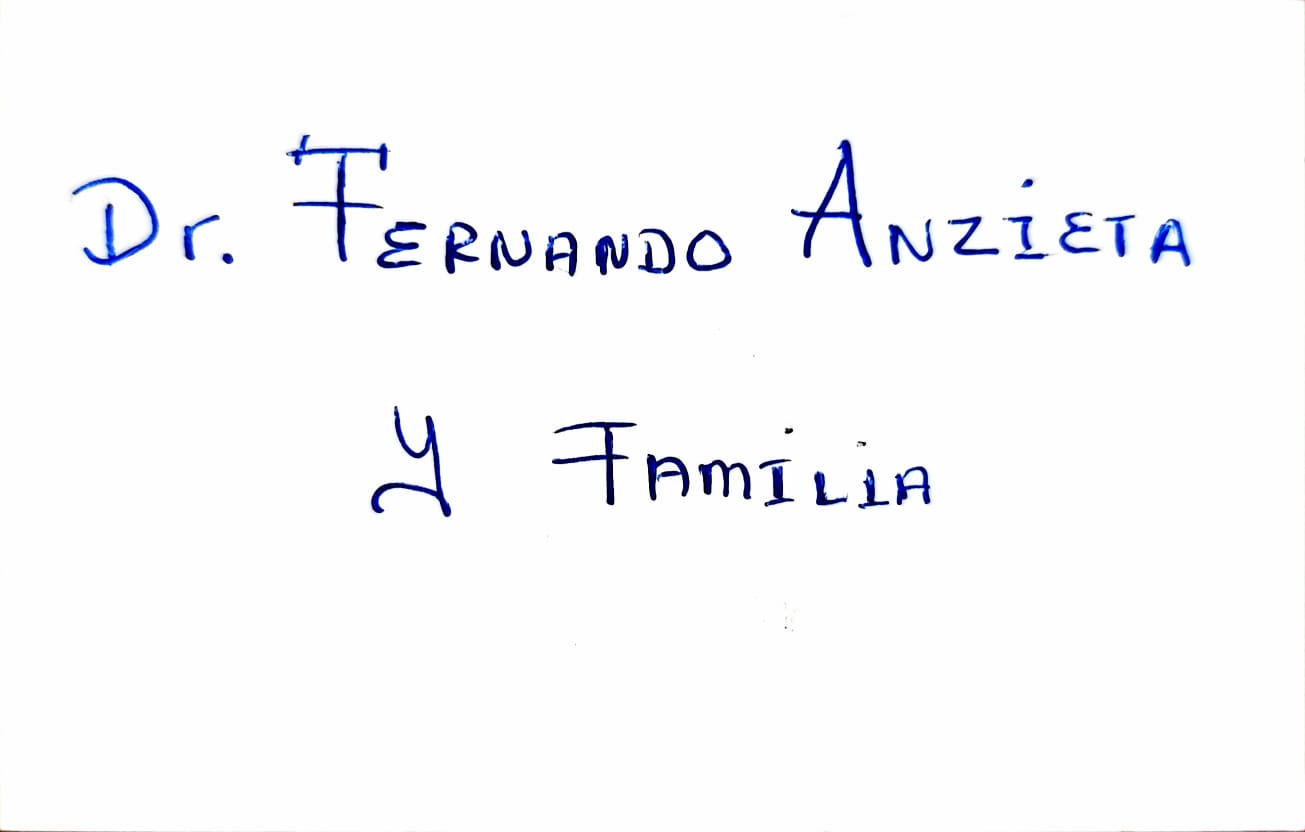 Dr. FERNANDO ANZIETA
Y FAMILIA